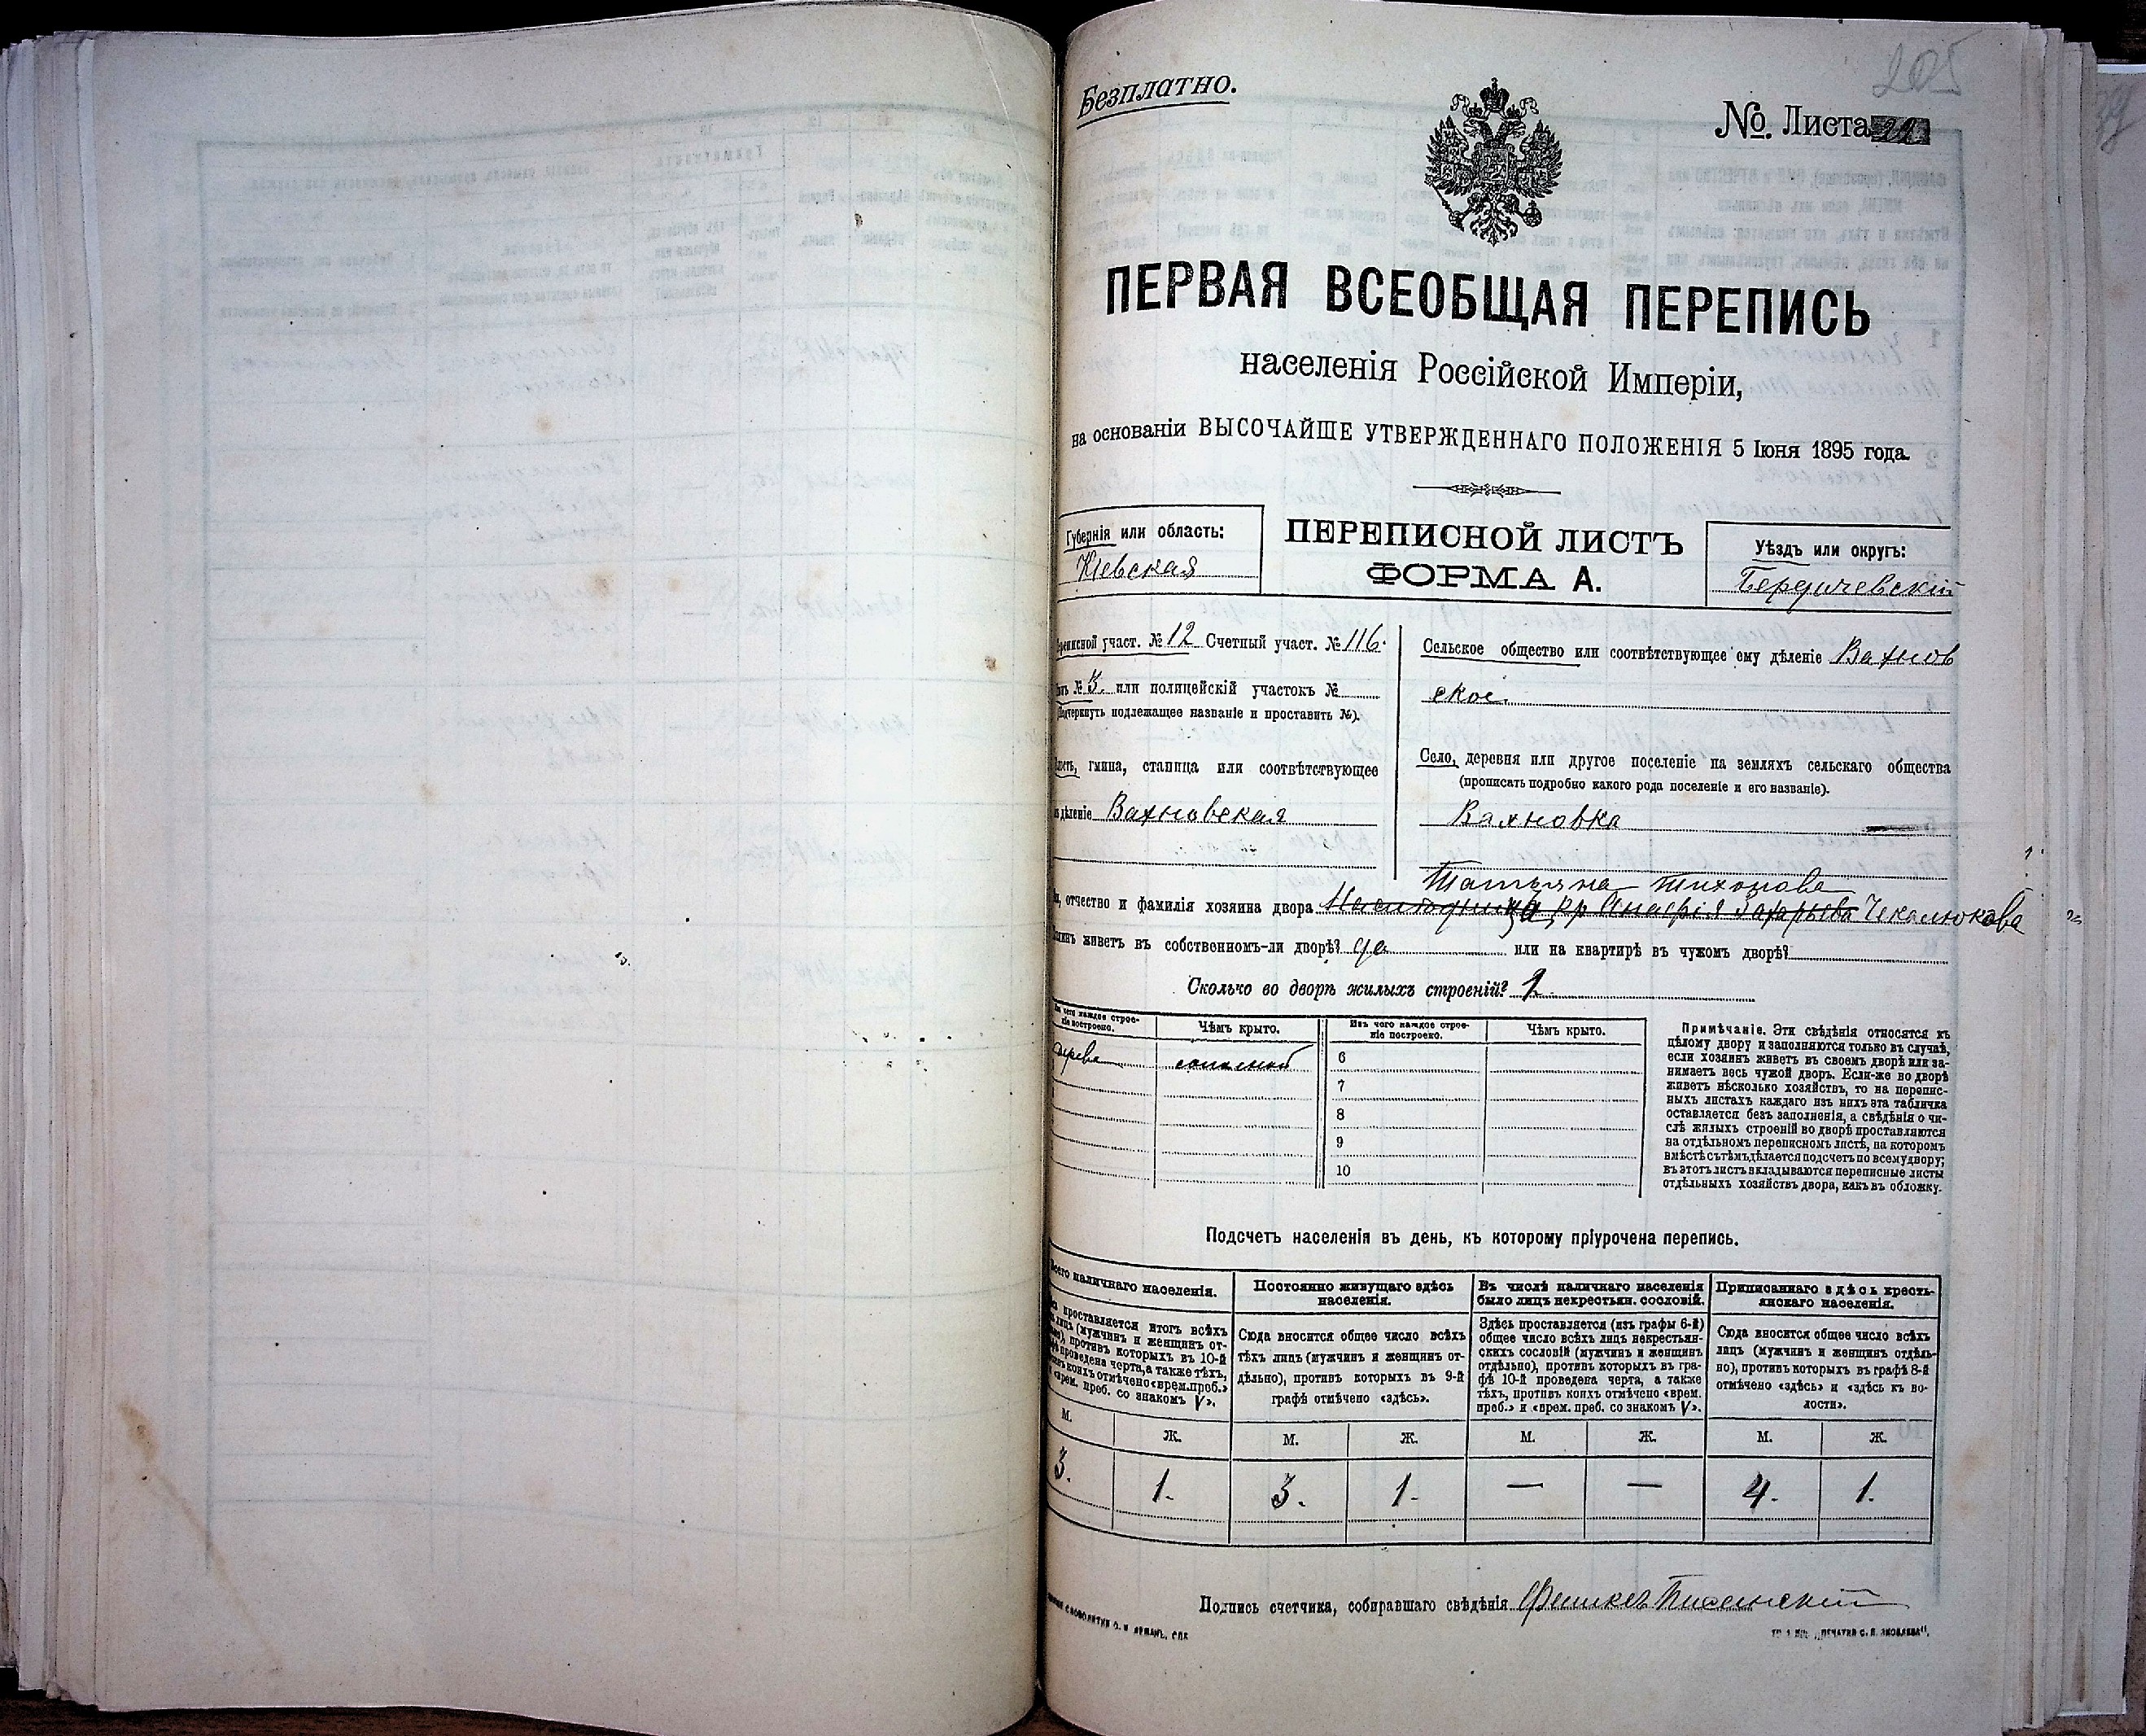 205
Безплатно.
№ Листа
ПЕРВАЯ ВСЕОБЩАЯ ПЕРЕПИСЬ
населенія Россійской Имперіи,
на основаніи ВЫСОЧАЙШЕ УТВЕРЖДЕННАГО ПОЛОЖЕНІЯ 5 Іюня 1895 года.
Губернія или область:
Кіевская
ПЕРЕПИСНОЙ ЛИСТЪ
ФОРМА А.
Уѣздъ или округъ:
Бердичевскій
участ. № 12 Счетный участ. № 116.
№ 3. или полицейскій участокъ №
подлежащее названіе и проставить №).
гмина, станица или соотвѣтствующее
дѣленіе Вахновская
Сельское общество или соотвѣтствующее ему дѣленіе Вахнов
ское.
Село, деревня или другое поселеніе на земляхъ сельскаго общества
(прописать подробно какого рода поселеніе и его названіе).
Вахновка
Татьяна Тихонова
отчество и фамилія хозяина двора Чекалюкова
живетъ въ собственномъ-ли дворѣ? да или на квартирѣ въ чужомъ дворѣ?
Сколько во дворѣ жилыхъ строеній? 1.
Чѣмъ крыто.
дерева соломой
Изъ чего каждое строе-
ніе построено.
Чѣмъ крыто.
6
7
8
9
10
Примѣчаніе. Эти свѣдѣнія относятся къ
цѣлому двору и заполняются только въ случаѣ,
если хозяинъ живетъ въ своемъ дворѣ или за-
нимаетъ весь чужой дворъ. Если-же во дворѣ
живетъ нѣсколько хозяйствъ, то на перепис-
ныхъ листахъ каждаго изъ нихъ эта табличка
оставляется безъ заполненія, а свѣдѣнія о чи-
слѣ жилыхъ строеній во дворѣ проставляются
на отдѣльномъ переписномъ листѣ, на которомъ
вмѣстѣ съ тѣмъ дѣлается подсчетъ по всему двору;
въ этотъ листъ вкладываются переписные листы
отдѣльныхъ хозяйствъ двора, какъ въ обложку.
Подсчетъ населенія въ день, къ которому пріурочена перепись.
Всего наличнаго населенія.
проставляется итогъ всѣхъ
лицъ (мужчинъ и женщинъ от-
противъ которыхъ въ 10-й
проведена черта, а также тѣхъ,
коихъ отмѣчено «врем. преб.»
«врем. преб. со знакомъ V».
М. Ж.
3. 1.
Постоянно живущаго здѣсь
населенія.
Сюда вносится общее число всѣхъ
тѣхъ лицъ (мужчинъ и женщинъ от-
дѣльно), противъ которыхъ въ 9-й
графѣ отмѣчено «здѣсь».
М. Ж.
3. 1.
Въ числѣ наличнаго населенія
было лицъ некрестьян. сословій.
Здѣсь проставляется (изъ графы 6-й)
общее число всѣхъ лицъ некрестьян-
скихъ сословій (мужчинъ и женщинъ
отдѣльно), противъ которыхъ въ гра-
фѣ 10-й проведена черта, а также
тѣхъ, противъ коихъ отмѣчено «врем.
преб.» и «врем. преб. со знакомъ V».
М. Ж.
— —
Приписаннаго здѣсь кресть-
янскаго населенія.
Сюда вносится общее число всѣхъ
лицъ (мужчинъ и женщинъ отдѣль-
но), противъ которыхъ въ графѣ 8-й
отмѣчено «здѣсь» и «здѣсь къ во-
лости».
М. Ж.
4. 1.
Подпись счетчика, собиравшаго свѣдѣнія